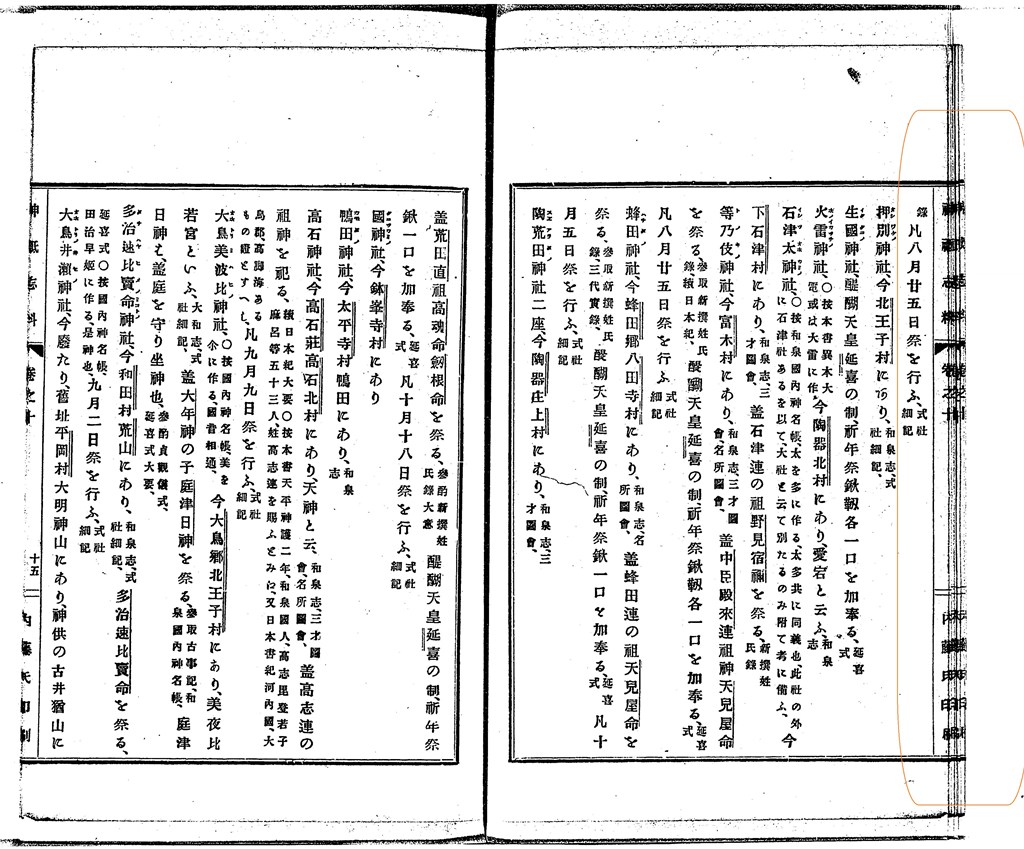 錄 凡八月廿五日祭を行ふ、式社細記
押別神社、今北王子村にあり、和泉志、式社細記、
生國神社、醍醐天皇延喜の制、祈年祭鍬靱各一口を加奉る、延喜式
火雷神社、〇按本書異本大雷或は大雷に作る、今陶器北村にあり、愛宕と云ふ、和泉志
石津太神社、〇按和泉國內神名帳、太を多に作る、太多共に同義也、此社の外に石津社あるを以て、大社と云て別たるのみ附て考に備ふ、今
下石津村にあり、和泉志、三才圖會、蓋石津連の祖野見宿禰を祭る、新撰姓氏錄
等乃伎神社、今富木村にあり、和泉志、三才圖會、名所圖會、蓋中臣殿來連祖神天兒屋命
を祭る、參取新撰姓氏錄、續日本紀、醍醐天皇延喜の制、祈年祭鍬靱各一口を加奉る、延喜式
凡八月廿五日祭を行ふ、式社細記
蜂田神社、今蜂田鄉八田寺村にあり、和泉志、名所圖會、蓋蜂田連の祖天兒屋命を
祭る、參取新撰姓氏錄、三代實錄、醍醐天皇延喜の制、祈年祭鍬一口を加奉る、延喜式 凡十
月五日祭を行ふ、式社細記
陶荒田神社二座、今陶器庄上村にあり、和泉志、三才圖會、
蓋荒田直祖高魂命劔根命を祭る、參酌新撰姓氏錄大意 醍醐天皇延喜の制、祈年祭
鍬一口を加奉る、延喜式 凡十月十八日祭を行ふ、式社細記
國神社、今鉢峯寺村にあり
鴨田神社、今太平寺村鴨田にあり、和泉志
高石神社、今高石莊高石北村にあり、天神と云、和泉志、三才圖會、名所圖會、蓋高志連の
祖神を祀る、續日本紀大要〇按本書天平神護二年、和泉國人、高志毘登若子麻呂等五十三人、姓高志連を賜ふとみに、又日本書紀河內國、大
鳥郡高海ある もの證とすへし、凡九月九日祭を行ふ、式社細記
大鳥美波比神社、〇按國內神名帳、美を尒に作る、國音相通、今大鳥鄉北王子村にあり、美夜比
若宮といふ、大和志、式社細記、蓋大年神の子庭津日神を祭る、參取古事記、和泉國內神名帳、庭津
日神も蓋庭を守り坐神也、參酌貞觀儀式、延喜式大要、
多治速比賣命神社、今和田村荒山にあり、和泉志、式社細記、多治速比賣命を祭る、
延喜式〇按國內神名帳、田治早姬に作る、是神也、九月二日祭を行ふ、式社細記
大鳥井瀨神社、今廢たり、舊址平岡村大明神山にあり、神供の古井猶山に
神祇志料
卷之十
十五
內藤氏印刷